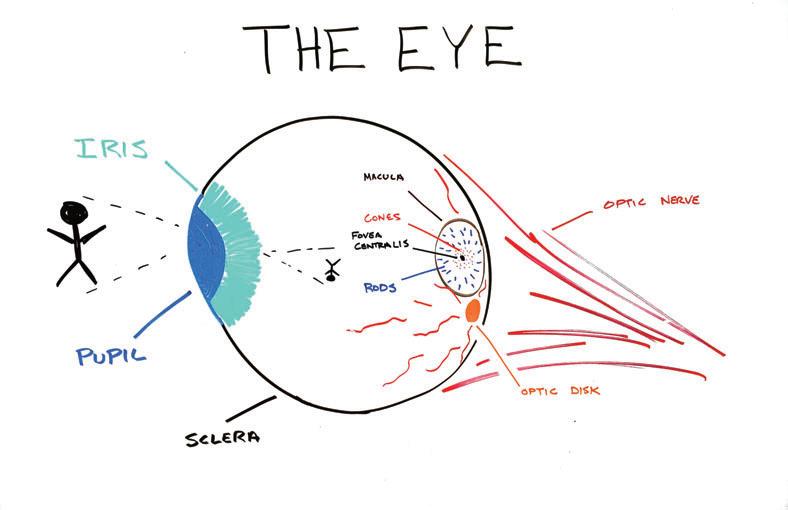 THE EYE
IRIS
MACULA
CONES
OPTIC NERVE
FOVEA
CENTRALIS
RODS
PUPIL
OPTIC DISK
SCLERA